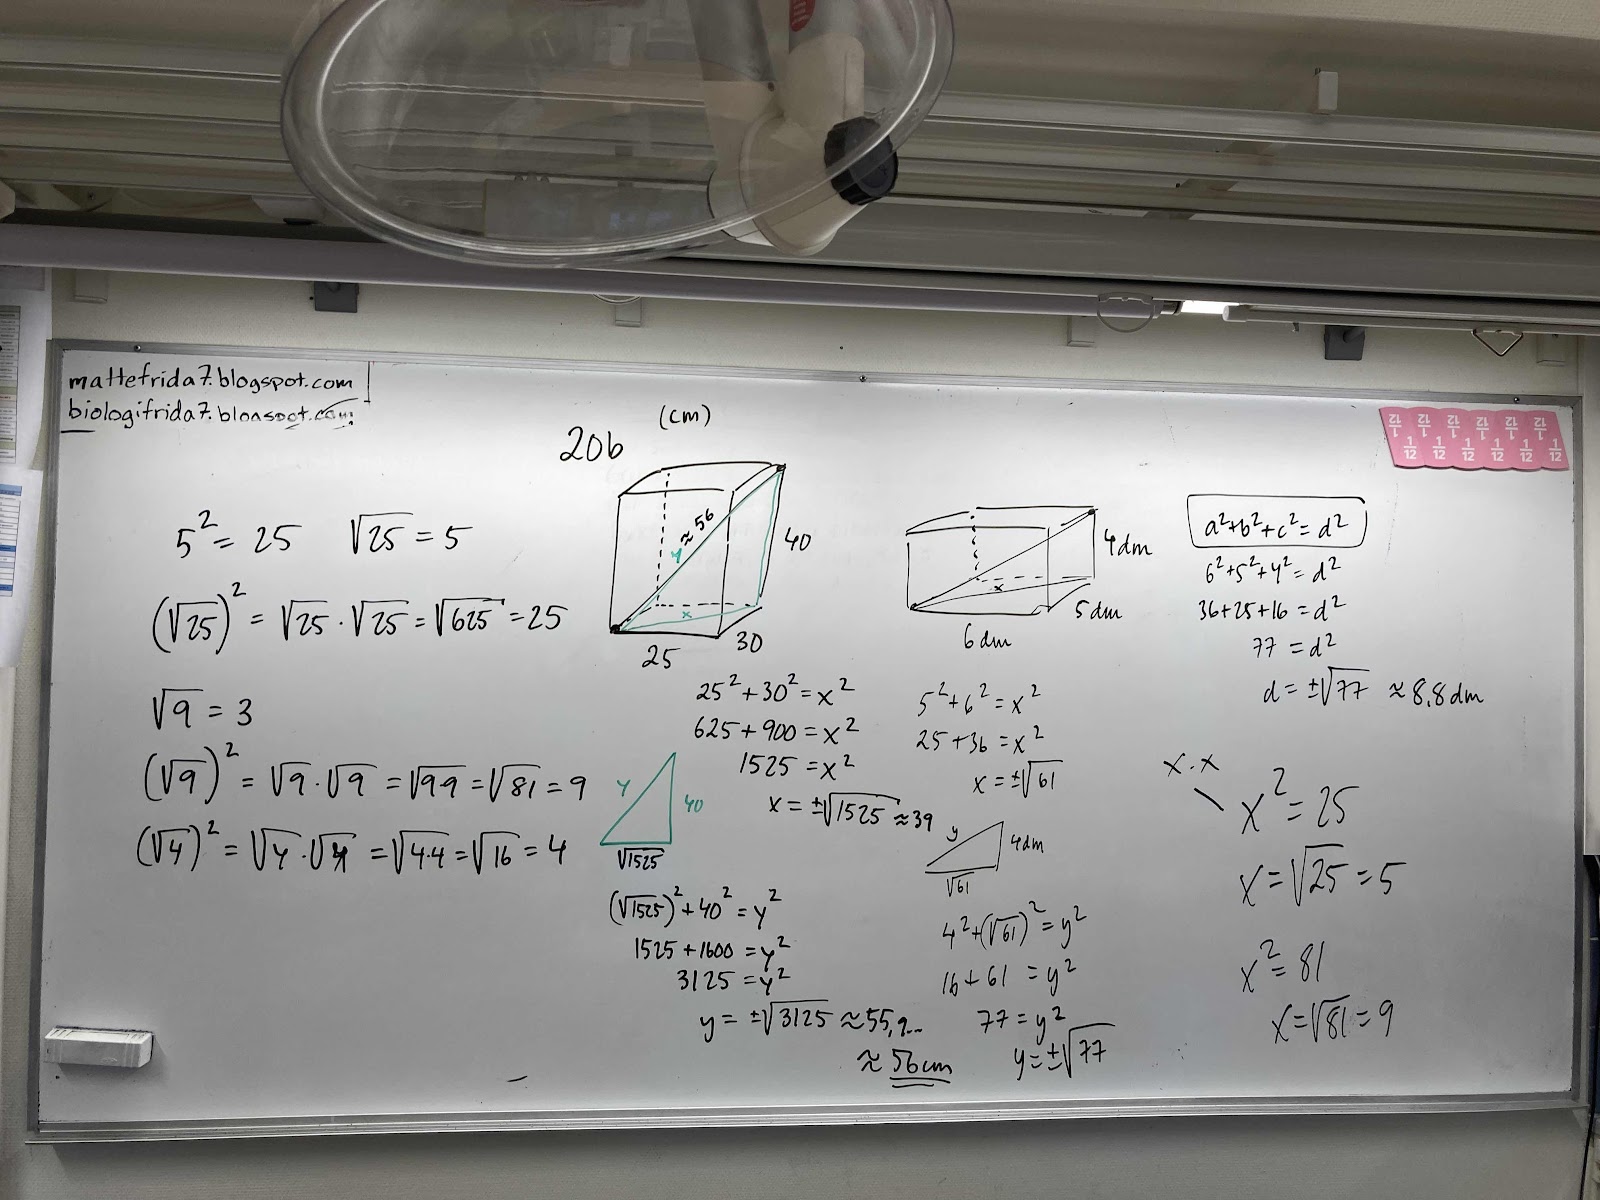 mattefrida7.blogspot.com
biologifrida7.blogspot.com
5² = 25 √25 = 5
(√25)² = √25 · √25 = √625 = 25
√9 = 3
(√9)² = √9 · √9 = √9·9 = √81 = 9
(√4)² = √4 · √4 = √4·4 = √16 = 4
20b
(cm)
y ≈ 56
40
x
30
25
25² + 30² = x²
625 + 900 = x²
1525 = x²
x = ±√1525 ≈ 39
y
40
√1525
(√1525)² + 40² = y²
1525 + 1600 = y²
3125 = y²
y = ±√3125 ≈ 55,9...
≈ 56 cm
4 dm
x
5 dm
6 dm
5² + 6² = x²
25 + 36 = x²
x = ±√61
y
4 dm
√61
4² + (√61)² = y²
16 + 61 = y²
77 = y²
y = ±√77
a² + b² + c² = d²
6² + 5² + 4² = d²
36 + 25 + 16 = d²
77 = d²
d = ±√77 ≈ 8,8 dm
x · x
x² = 25
x = √25 = 5
x² = 81
x = √81 = 9
1/12 1/12 1/12 1/12 1/12 1/12
1/12 1/12 1/12 1/12 1/12 1/12